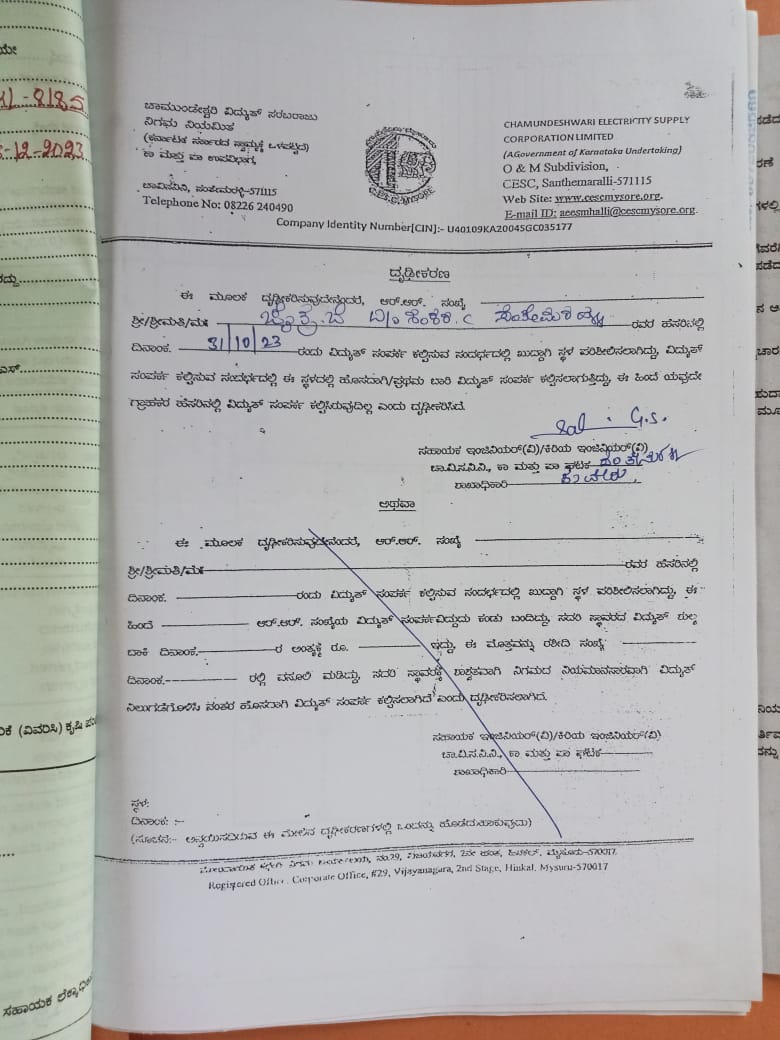 ಯೇ
-8185
-12-2023
ಚಾಮುಂಡೇಶ್ವರಿ ವಿದ್ಯುತ್ ಸರಬರಾಜು
ನಿಗಮ ನಿಯಮಿತ
(ಕರ್ನಾಟಕ ಸರ್ಕಾರದ ಸ್ವಾಮ್ಯಕ್ಕೆ ಒಳಪಟ್ಟಿದೆ)
ಕಾ ಮತ್ತು ಪಾ ಉಪವಿಭಾಗ,
ಚಾವಿಸನಿನಿ, ಸಂತೇಮರಳ್ಳಿ-571115
Telephone No: 08226 240490
CESC, MYSORE
CHAMUNDESHWARI ELECTRICITY SUPPLY
CORPORATION LIMITED
(AGovernment of Karnataka Undertaking)
O & M Subdivision,
CESC, Santhemaralli-571115
Web Site: www.cescmysore.org.
E-mail ID: aeesmhalli@cescmysore.org.
Company Identity Number[CIN]:- U40109KA20045GC035177
ದೃಢೀಕರಣ
ಈ ಮೂಲಕ ದೃಢೀಕರಿಸುವುದೇನೆಂದರೆ, ಆರ್.ಆರ್. ಸಂಖ್ಯೆ
ಶ್ರೀ/ಶ್ರೀಮತಿ/ಮೆ: ರವರ ಹೆಸರಿನಲ್ಲಿ
ದಿನಾಂಕ. 31/10/23 ರಂದು ವಿದ್ಯುತ್ ಸಂಪರ್ಕ ಕಲ್ಪಿಸುವ ಸಂದರ್ಭದಲ್ಲಿ ಖುದ್ದಾಗಿ ಸ್ಥಳ ಪರಿಶೀಲಿಸಲಾಗಿದ್ದು, ವಿದ್ಯುತ್
ಸಂಪರ್ಕ ಕಲ್ಪಿಸುವ ಸಂದರ್ಭದಲ್ಲಿ ಈ ಸ್ಥಳದಲ್ಲಿ ಹೊಸದಾಗಿ/ಪ್ರಥಮ ಬಾರಿ ವಿದ್ಯುತ್ ಸಂಪರ್ಕ ಕಲ್ಪಿಸಲಾಗುತ್ತಿದ್ದು, ಈ ಹಿಂದೆ ಯಾವುದೇ
ಗ್ರಾಹಕರ ಹೆಸರಿನಲ್ಲಿ ವಿದ್ಯುತ್ ಸಂಪರ್ಕ ಕಲ್ಪಿಸಿರುವುದಿಲ್ಲ ಎಂದು ದೃಢೀಕರಿಸಿದೆ.
Sd/- G.S.
ಸಹಾಯಕ ಇಂಜಿನಿಯರ್(ವಿ)/ಕಿರಿಯ ಇಂಜಿನಿಯರ್(ವಿ)
ಚಾ.ವಿ.ಸ.ನಿ.ನಿ., ಕಾ ಮತ್ತು ಪಾ ಘಟಕ
ಶಾಖಾಧಿಕಾರಿ
ಅಥವಾ
ಈ ಮೂಲಕ ದೃಢೀಕರಿಸುವುದೇನೆಂದರೆ, ಆರ್.ಆರ್. ಸಂಖ್ಯೆ
ಶ್ರೀ/ಶ್ರೀಮತಿ/ಮೆ: ರವರ ಹೆಸರಿನಲ್ಲಿ
ದಿನಾಂಕ. ರಂದು ವಿದ್ಯುತ್ ಸಂಪರ್ಕ ಕಲ್ಪಿಸುವ ಸಂದರ್ಭದಲ್ಲಿ ಖುದ್ದಾಗಿ ಸ್ಥಳ ಪರಿಶೀಲಿಸಲಾಗಿದ್ದು, ಈ
ಹಿಂದೆ ಆರ್.ಆರ್. ಸಂಖ್ಯೆಯ ವಿದ್ಯುತ್ ಸಂಪರ್ಕವಿದ್ದುದು ಕಂಡು ಬಂದಿದ್ದು, ಸದರಿ ಸ್ಥಾವರದ ವಿದ್ಯುತ್ ಶುಲ್ಕ
ಬಾಕಿ ದಿನಾಂಕ. ರ ಅಂತ್ಯಕ್ಕೆ ರೂ. ಇದ್ದು, ಈ ಮೊತ್ತವನ್ನು ರಶೀದಿ ಸಂಖ್ಯೆ
ದಿನಾಂಕ. ರಲ್ಲಿ ವಸೂಲಿ ಮಾಡಿದ್ದು, ಸದರಿ ಸ್ಥಾವರಕ್ಕೆ ಶಾಶ್ವತವಾಗಿ ನಿಗಮದ ನಿಯಮಾನುಸಾರವಾಗಿ ವಿದ್ಯುತ್
ನಿಲುಗಡೆಗೊಳಿಸಿ ನಂತರ ಹೊಸದಾಗಿ ವಿದ್ಯುತ್ ಸಂಪರ್ಕ ಕಲ್ಪಿಸಲಾಗಿದೆ ಎಂದು ದೃಢೀಕರಿಸಲಾಗಿದೆ.
ಸಹಾಯಕ ಇಂಜಿನಿಯರ್(ವಿ)/ಕಿರಿಯ ಇಂಜಿನಿಯರ್(ವಿ)
ಚಾ.ವಿ.ಸ.ನಿ.ನಿ., ಕಾ ಮತ್ತು ಪಾ ಘಟಕ
ಶಾಖಾಧಿಕಾರಿ
ಸ್ಥಳ:
ದಿನಾಂಕ: :-
(ಸೂಚನೆ:- ಅನ್ವಯಿಸದಿರುವ ಈ ಮೇಲಿನ ದೃಢೀಕರಣಗಳಲ್ಲಿ ಒಂದನ್ನು ಹೊಡೆದುಹಾಕುವುದು)
Registered Office: Corporate Office, #29, Vijayanagara, 2nd Stage, Hinkal, Mysuru-570017
ಸಹಾಯಕ ಲೆಕ್ಕಾಧಿಕ